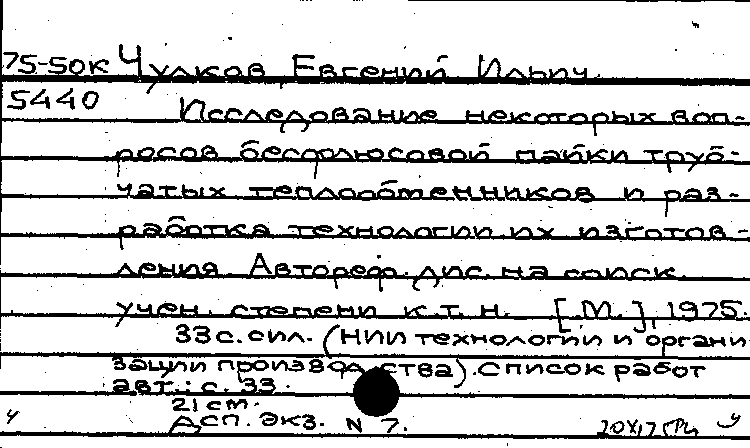 75-50к Чулков Евгений Ильич.
5440 Исследование некоторых воп-
росов бесфлюсовой пайки труб-
чатых теплообменников и раз-
работка технологии их изготов-
ления. Автореф. дис. на соиск.
учен. степени к.т.н. [М.], 1975.
33 с. с ил. (НИИ технологии и органи
зации производства). Список работ
авт.: с. 33.
21 см.
Дсп. Экз. N 7.
ч у